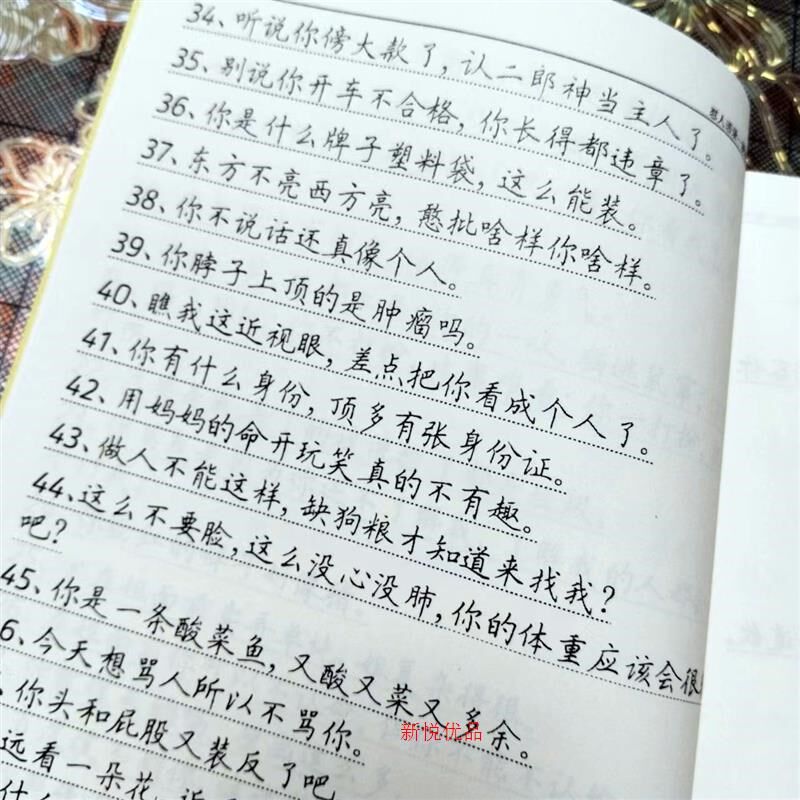 34、听说你傍大款了，认二郎神当主人了。
35、别说你开车不合格，你长得都违章了。
36、你是什么牌子塑料袋，这么能装。
37、东方不亮西方亮，憨批啥样你啥样。
38、你不说话还真像个人。
39、你脖子上顶的是肿瘤吗。
40、瞧我这近视眼，差点把你看成个人了。
41、你有什么身份，顶多有张身份证。
42、用妈妈的命开玩笑真的不有趣。
43、做人不能这样，缺狗粮才知道来找我？
44、这么不要脸，这么没心没肺，你的体重应该会很
吧？
45、你是一条酸菜鱼，又酸又菜又多余。
6、今天想骂人所以不骂你。
、你头和屁股又装反了吧
远看一朵花，近
什么
新悦优品